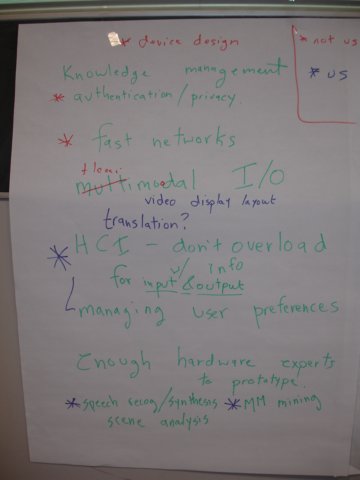 * device design
* not us
* us
Knowledge management
* authentication/privacy
* fast networks
multimodal I/O
video display layout
translation?
* HCI - don't overload
w/ info
for input & output
managing user preferences
Enough hardware experts
to prototype.
* speech recog/synthesis * MM mining
scene analysis